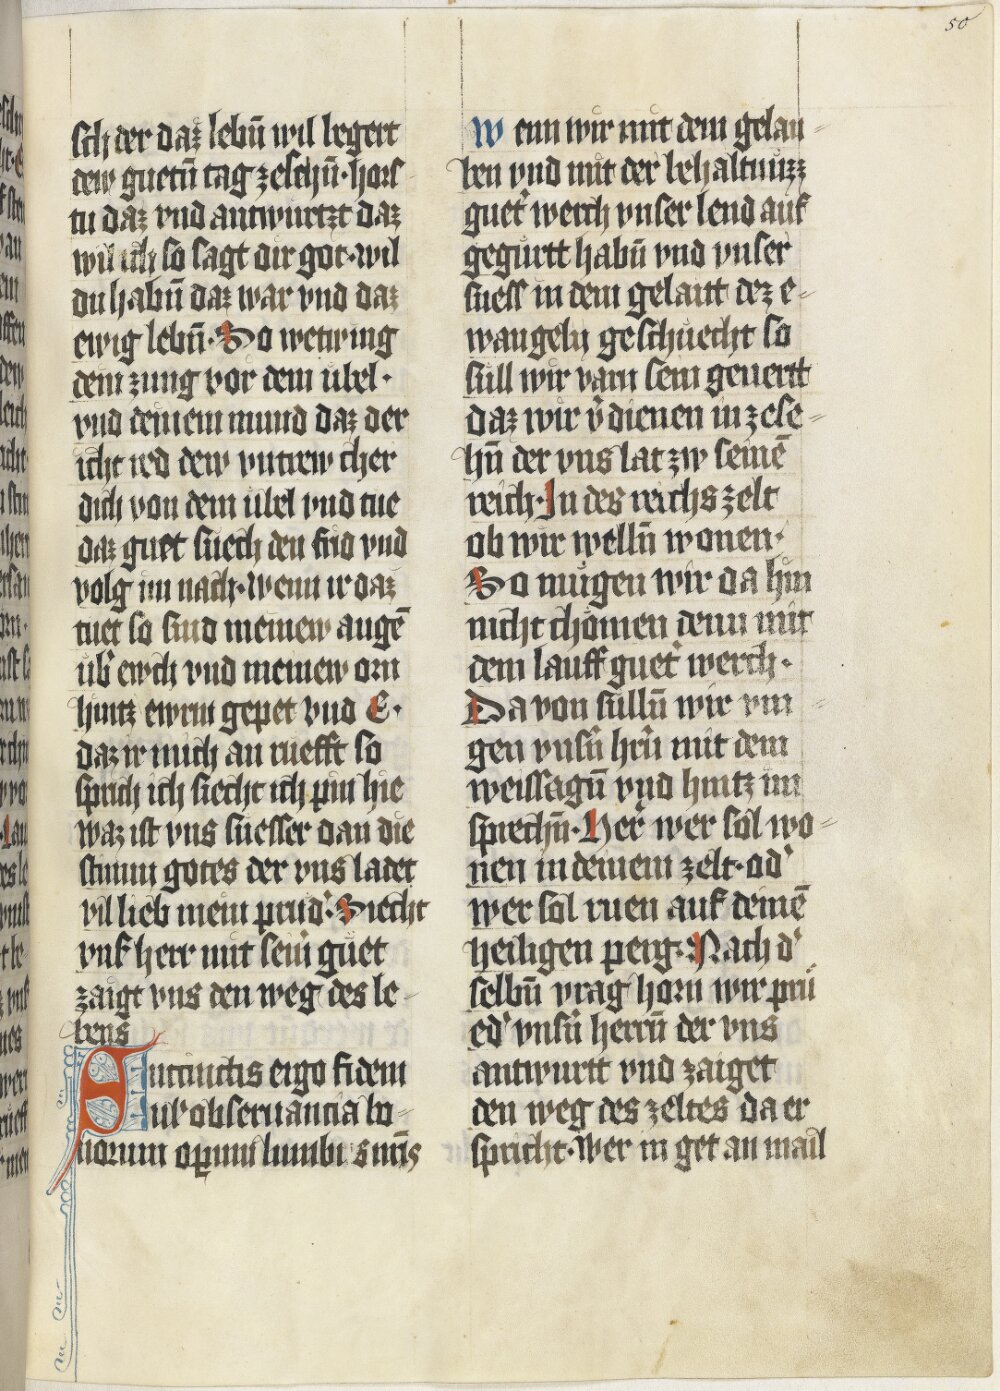 50
sch der daz lebn̄ wil legert
dew guetn̄ tag zesehn̄·hors
tu daz vnd antwurtzt daz
wil ich so sagt dir got·wil
du habn̄ daz war vnd daz
ewig lebn̄·So wetwing
dein zung vor dem ubel·
vnd deinem mund daz der
icht red dew vntrew cher
dich von dem ubel vnd tue
daz guet suech den frid vnd
volg im nach·wenn ir daz
tuet so sind meinew augē
ub̾ ewch vnd meinew orn
hintz ewrm gepet vnd E·
daz ir mich an ruefft so
sprich ich siecht ich pin hie
waz ist vns suesser dan die
stimm gotes der vns ladet
vil lieb mein prud̾·Siecht
vns̾ herr mit sein̾ guet
zaigt vns den weg des le-
bens
Succinctis ergo fidem
uľ obseruancia bo-
norum operum lumbis nr̄is
Wenn wir mit dem gelau-
ben vnd mit der behaltnuzz
guet̾ werch vnser lend auf
gegurtt habn̄ vnd vnser
fuess in dem gelautt dez e-
wangely geschuecht so
sull wir varn sein geuertt
daz wir v̾dienen in zese-
hn̄ der vns lat zw seinē
reich·In des reichs zelt
ob wir welln̄ wonen·
So mugen wir da hin
nicht chomen denn mit
dem lauff guet̾ werch·
Da von sulln̄ wir vra
gen vnsn̄ hrn̄ mit dem
weissagn̄ vnd hintz im
sprechn̄·Her̾ wer sol wo-
nen in deinem zelt·od̾
wer sol ruen auf deinē
heiligen perg·Nach d̾
selbn̄ vrag horn wir prü
ed̾ vnsn̄ herrn̄ der vns
antwurtt vnd zaiget
den weg des zeltes da er
spricht·Wer in get an mail